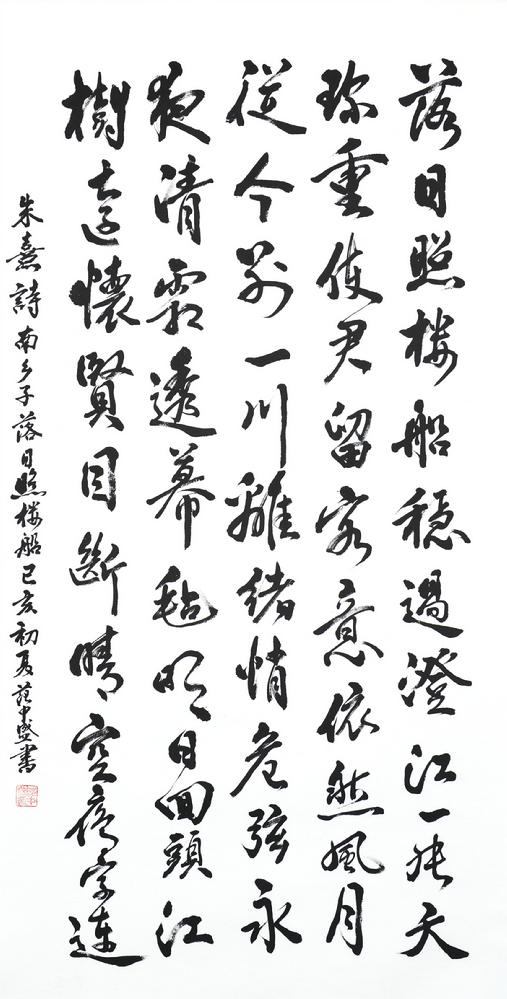 落日照楼船穩過澄江一片天
珎重使君留客意依然風月
從今別一川離緒悄危弦永
夜清霜透幕毡明日回頭江
樹遠懷賢目斷晴空雁字連
朱熹詩南乡子落日照楼船己亥初夏范中盛書